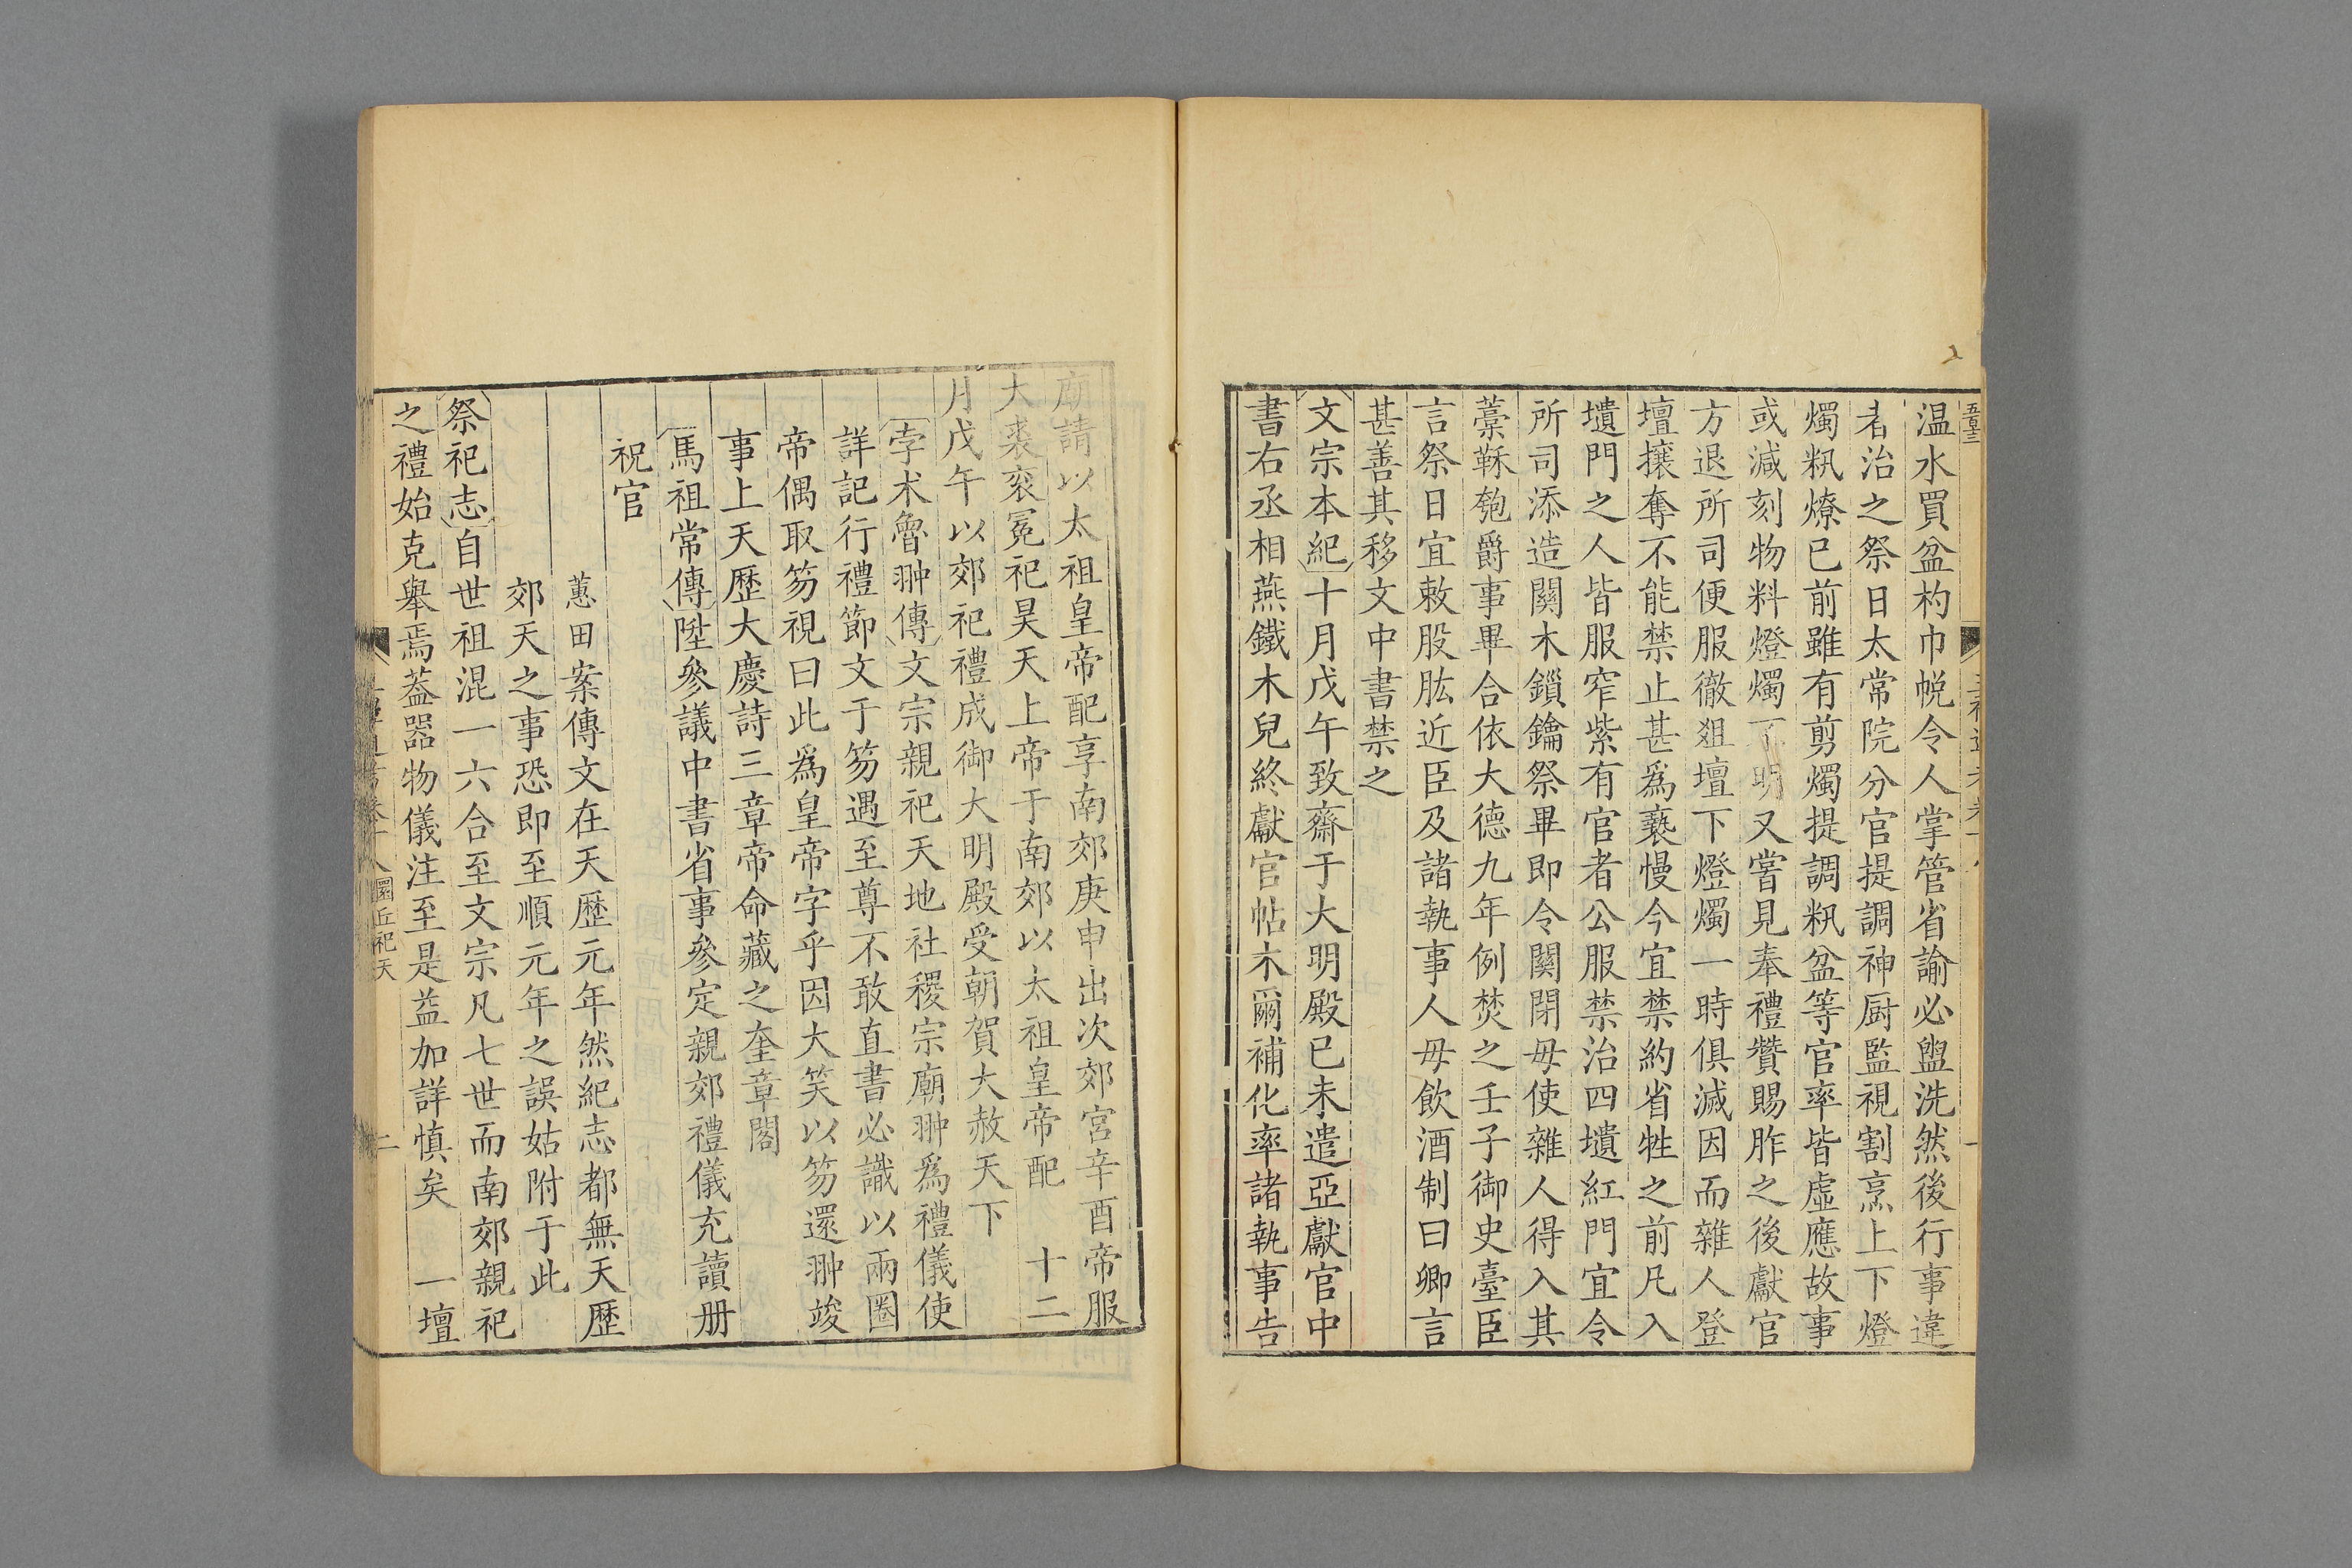 五百三
温水買盆杓巾帨令人掌管省諭必盥洗然後行事違
者治之祭日太常院分官提調神厨監視割烹上下燈
燭籸燎已前雖有剪燭提調籸盆等官率皆虛應故事
或減刻物料燈燭不明又嘗見奉禮贊賜胙之後獻官
方退所司便服徹爼壇下燈燭一時俱滅因而雜人登
壇攘奪不能禁止甚爲褻慢今宜禁約省牲之前凡入
壝門之人皆服窄紫有官者公服禁治四壝紅門宜令
所司添造關木鎖鑰祭畢即令關閉毋使雜人得入其
藁秣匏爵事畢合依大德九年例焚之壬子御史臺臣
言祭日宜敕股肱近臣及諸執事人毋飲酒制曰卿言
甚善其移文中書禁之
文宗本紀十月戊午致齋于大明殿已未遣亞獻官中
書右丞相燕鐵木兒終獻官帖木爾補化率諸執事告
廟請以太祖皇帝配享南郊庚申出次郊宮辛酉帝服
大裘衮冕祀昊天上帝于南郊以太祖皇帝配 十二
月戊午以郊祀禮成御大明殿受朝賀大赦天下
孛术魯翀傳文宗親祀天地社稷宗廟翀爲禮儀使
詳記行禮節文于笏遇至尊不敢直書必識以兩圈
帝偶取笏視曰此爲皇帝字乎因大笑以笏還翀竣
事上天歷大慶詩三章帝命藏之奎章閣
馬祖常傳陞參議中書省事參定親郊禮儀充讀册
祝官
蕙田案傳文在天歷元年然紀志都無天歷
郊天之事恐即至順元年之誤姑附于此
祭祀志自世祖混一六合至文宗凡七世而南郊親祀
之禮始克舉焉葢器物儀注至是益加詳慎矣 一壇
圜丘祀天
二